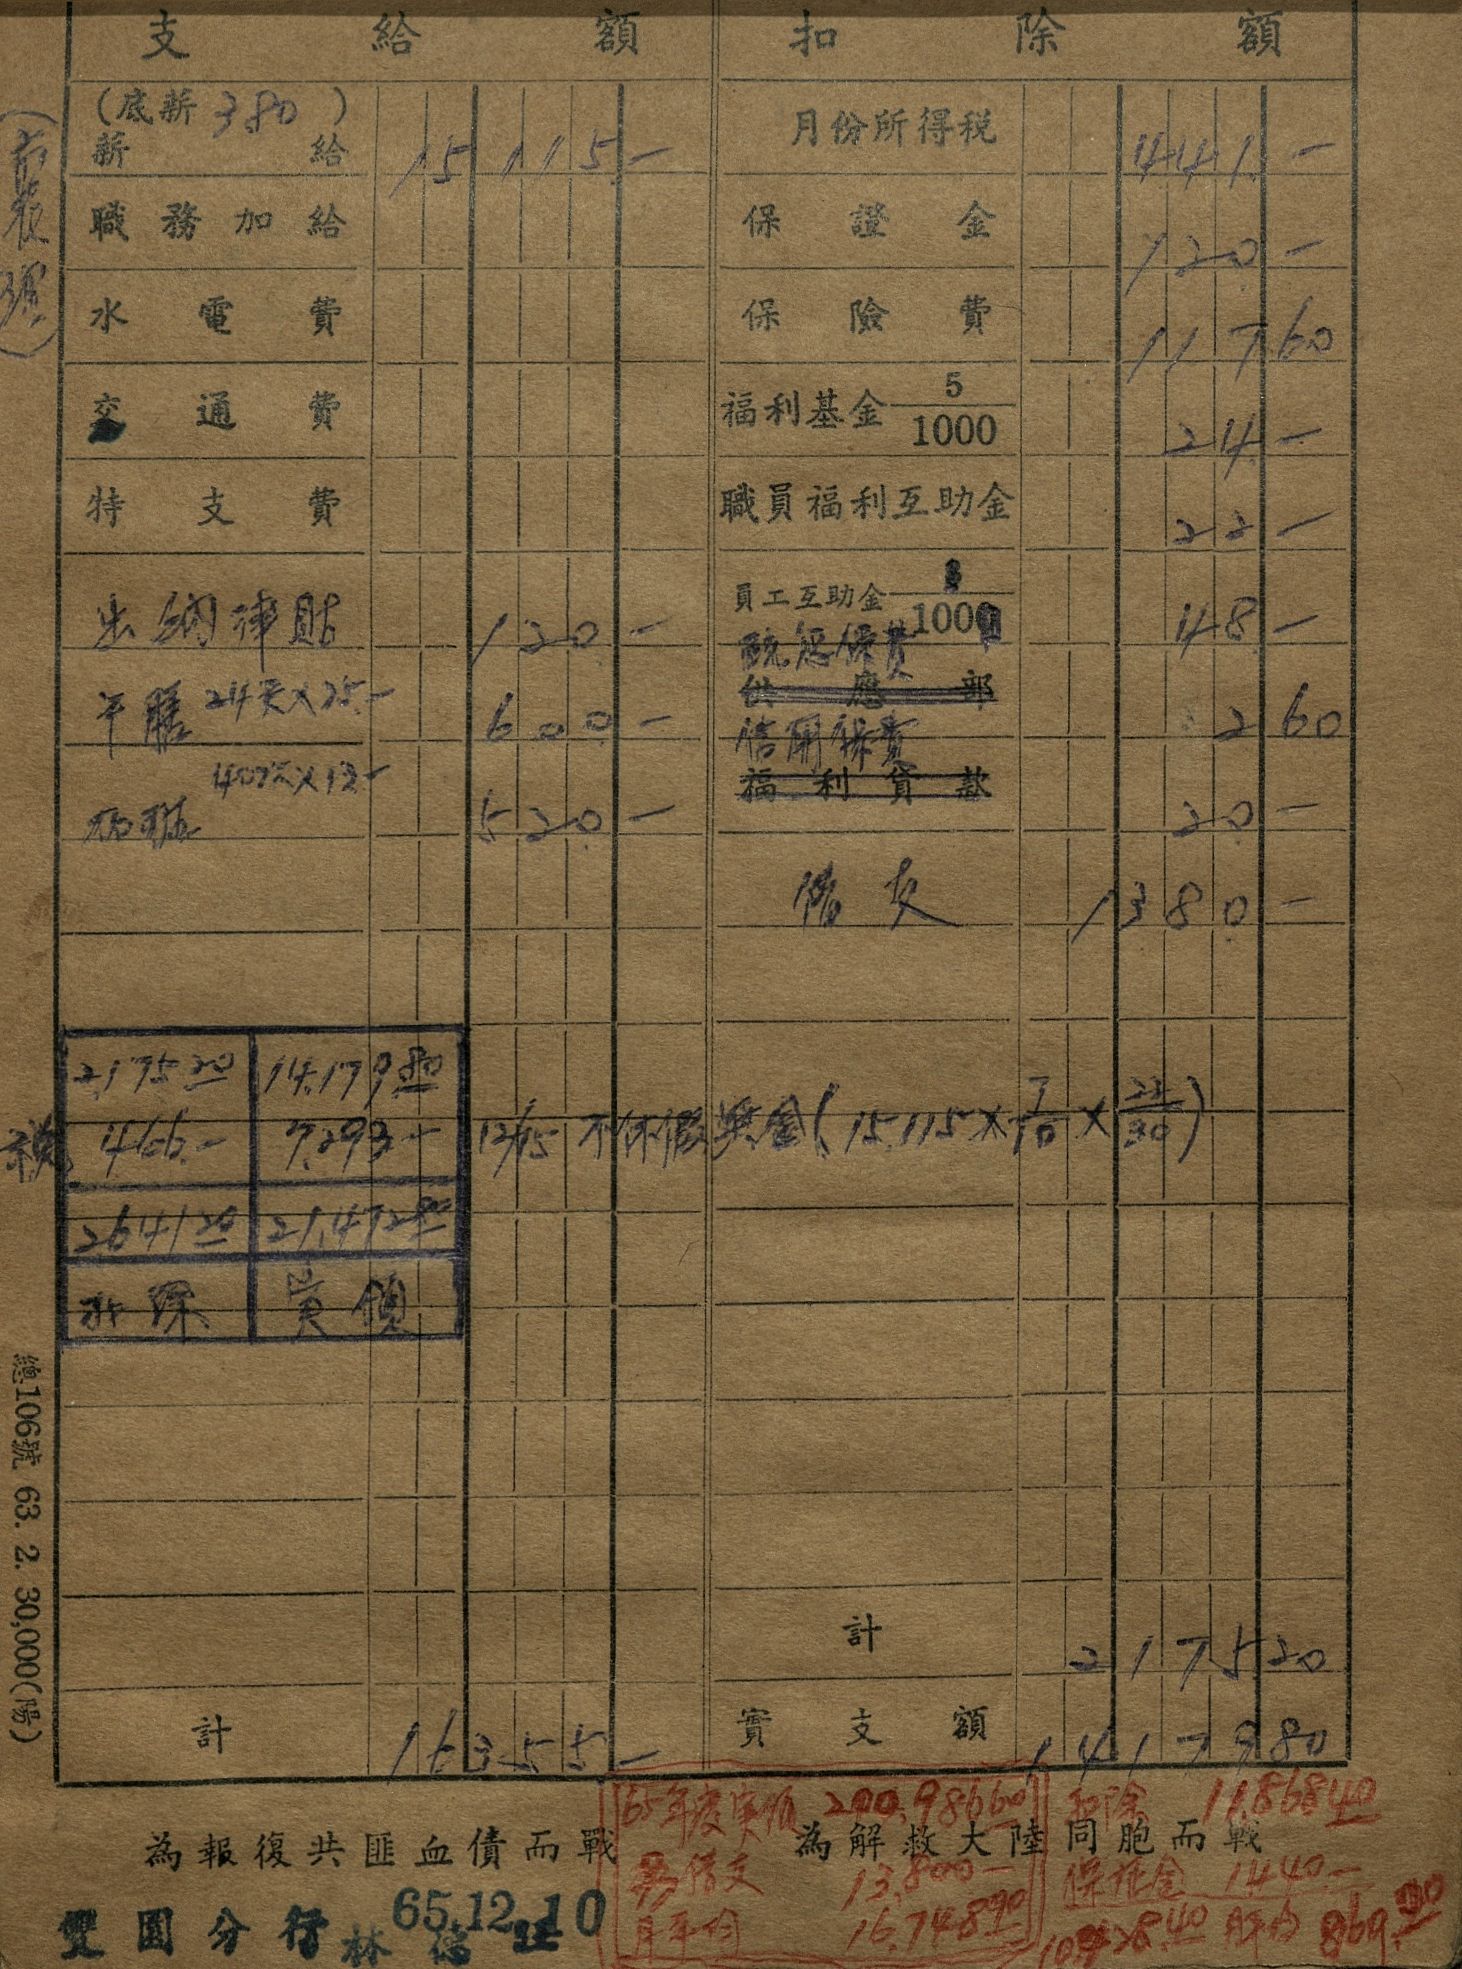 支給額 扣除額
(底薪 380)
薪給 15 115 —
月份所得稅 441 —
職務加給
保證金 120 —
水電費
保險費 117 60
交通費
福利基金 5/1000 24 —
特支費
職員福利互助金 22 —
出納津貼 120 —
員工互助金 /1000 48 —
午膳 24天×25— 600 —
供應部
信用保費 2 60
407×13—
520 —
福利貸款 20 —
借支 1380 —
2,175 20 14,179 80
466 — 7,293 — 12/15 不休假獎金(15,115×7/10×21/30)
2641 20 21,472 80
扣除 實領
計 2175 20
計 16355 —
實支額 14179 80
65年度實領 200,986 60 扣除 11,868 40
為報復共匪血債而戰 為解救大陸同胞而戰
另借支 13,800 — 保證金 1440 —
月平均 16,748 90 10,428.40 月平均 869.00
雙園分行 林 65.12.10
總106號 63. 2. 30,000(陽)